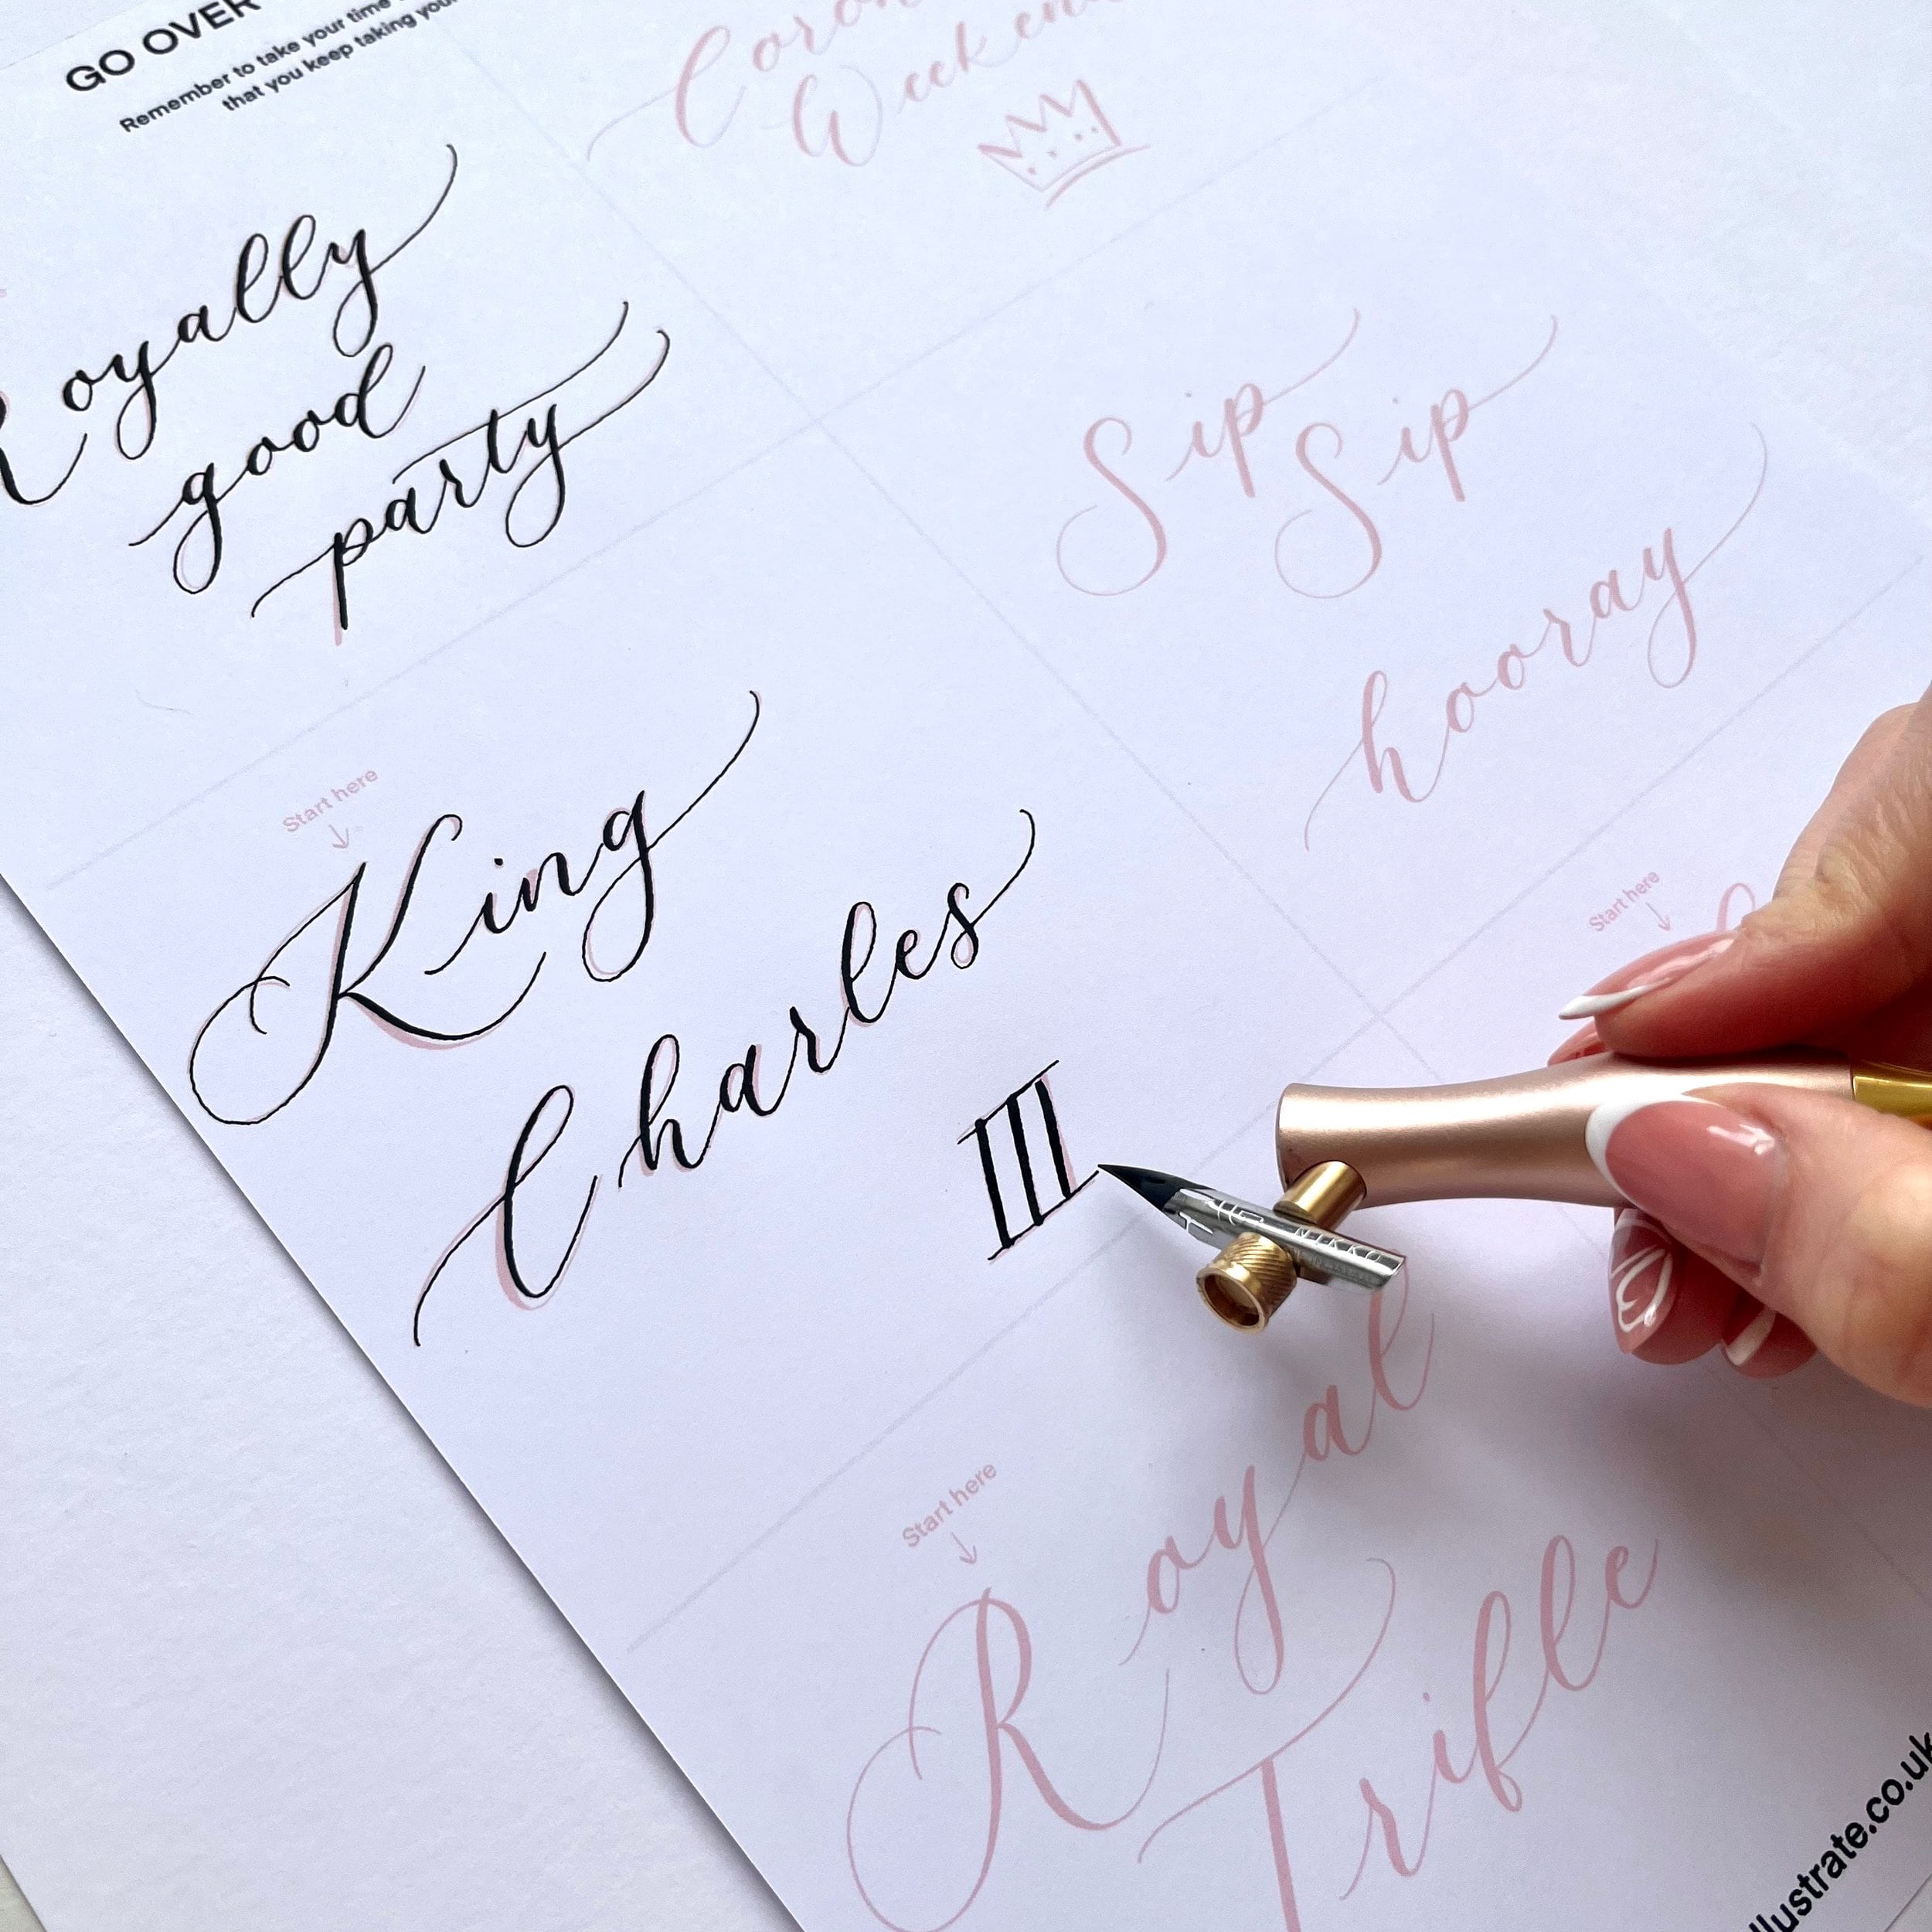 GO OVER
Remember to take your time
that you keep taking your
Royally
good
party
Weekend
Sip Sip
hooray
Start here
King
Charles
III
Start here
NIKKO
Start here
Royal
Trifle
llustrate.co.uk